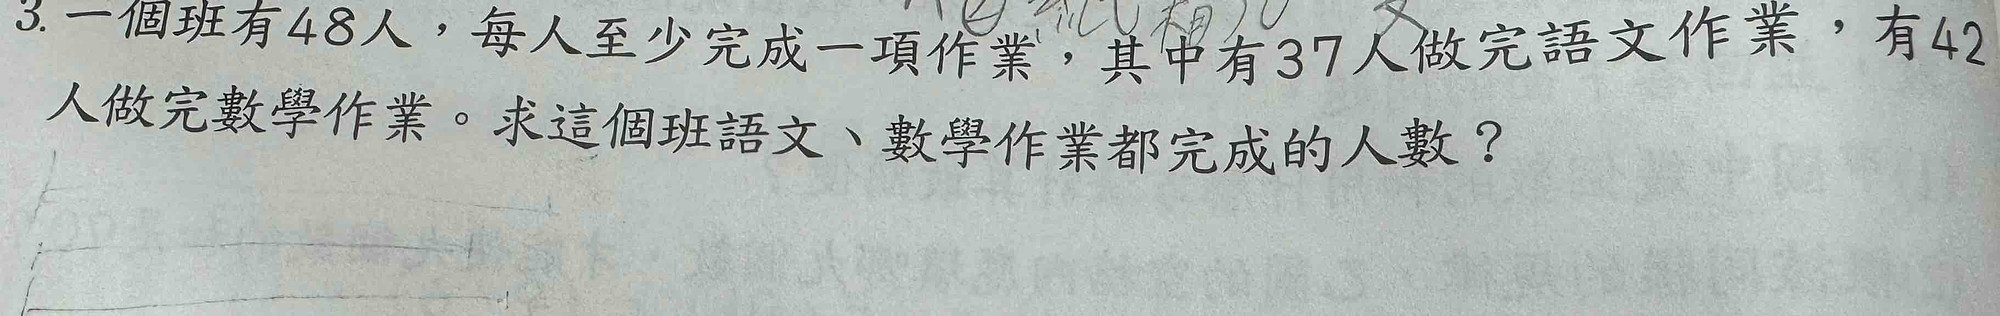 3. 一個班有48人，每人至少完成一項作業，其中有37人做完語文作業，有42
人做完數學作業。求這個班語文、數學作業都完成的人數？